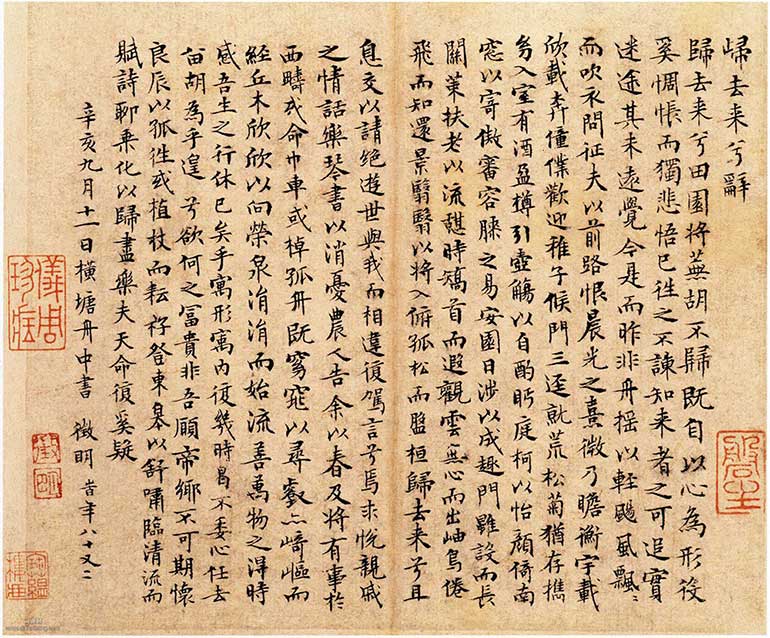 歸去来兮辭
歸去来兮田園將蕪胡不歸既自以心為形役
奚惆悵而獨悲悟已往之不諫知来者之可追實
迷途其未遠覺今是而昨非舟摇以輕颺風飄〻
而吹衣問征夫以前路恨晨光之熹微乃瞻衡宇載
欣載奔僮僕歡迎稚子候門三逕就荒松菊猶存攜
幼入室有酒盈樽引壺觴以自酌眄庭柯以怡顔倚南
窓以寄傲審容膝之易安園日涉以成趣門雖設而長
關策扶老以流憩時矯首而遐觀雲無心而出岫鳥倦
飛而知還景翳翳以將入孤松而盤桓歸去来兮且
息交以請絶遊世與我而相違復駕言兮焉求悅親戚
之情話樂琴書以消憂農人告余以春及將有事於
西疇或命巾車或棹孤舟既窈窕以尋壑亦崎嶇而
經丘木欣欣以向榮泉涓涓而始流善萬物之得時
感吾生之行休已矣乎寓形寓内復幾時曷不委心任去
留胡為乎遑兮欲何之富貴非吾願帝鄉不可期懷
良辰以孤往或植杖而耘耔登東皋以舒嘯臨清流而
賦詩聊乗化以歸盡樂夫天命復奚疑
辛亥九月十一日橫塘舟中書 徵明 旹年八十又二
儀周珍藏
徵明